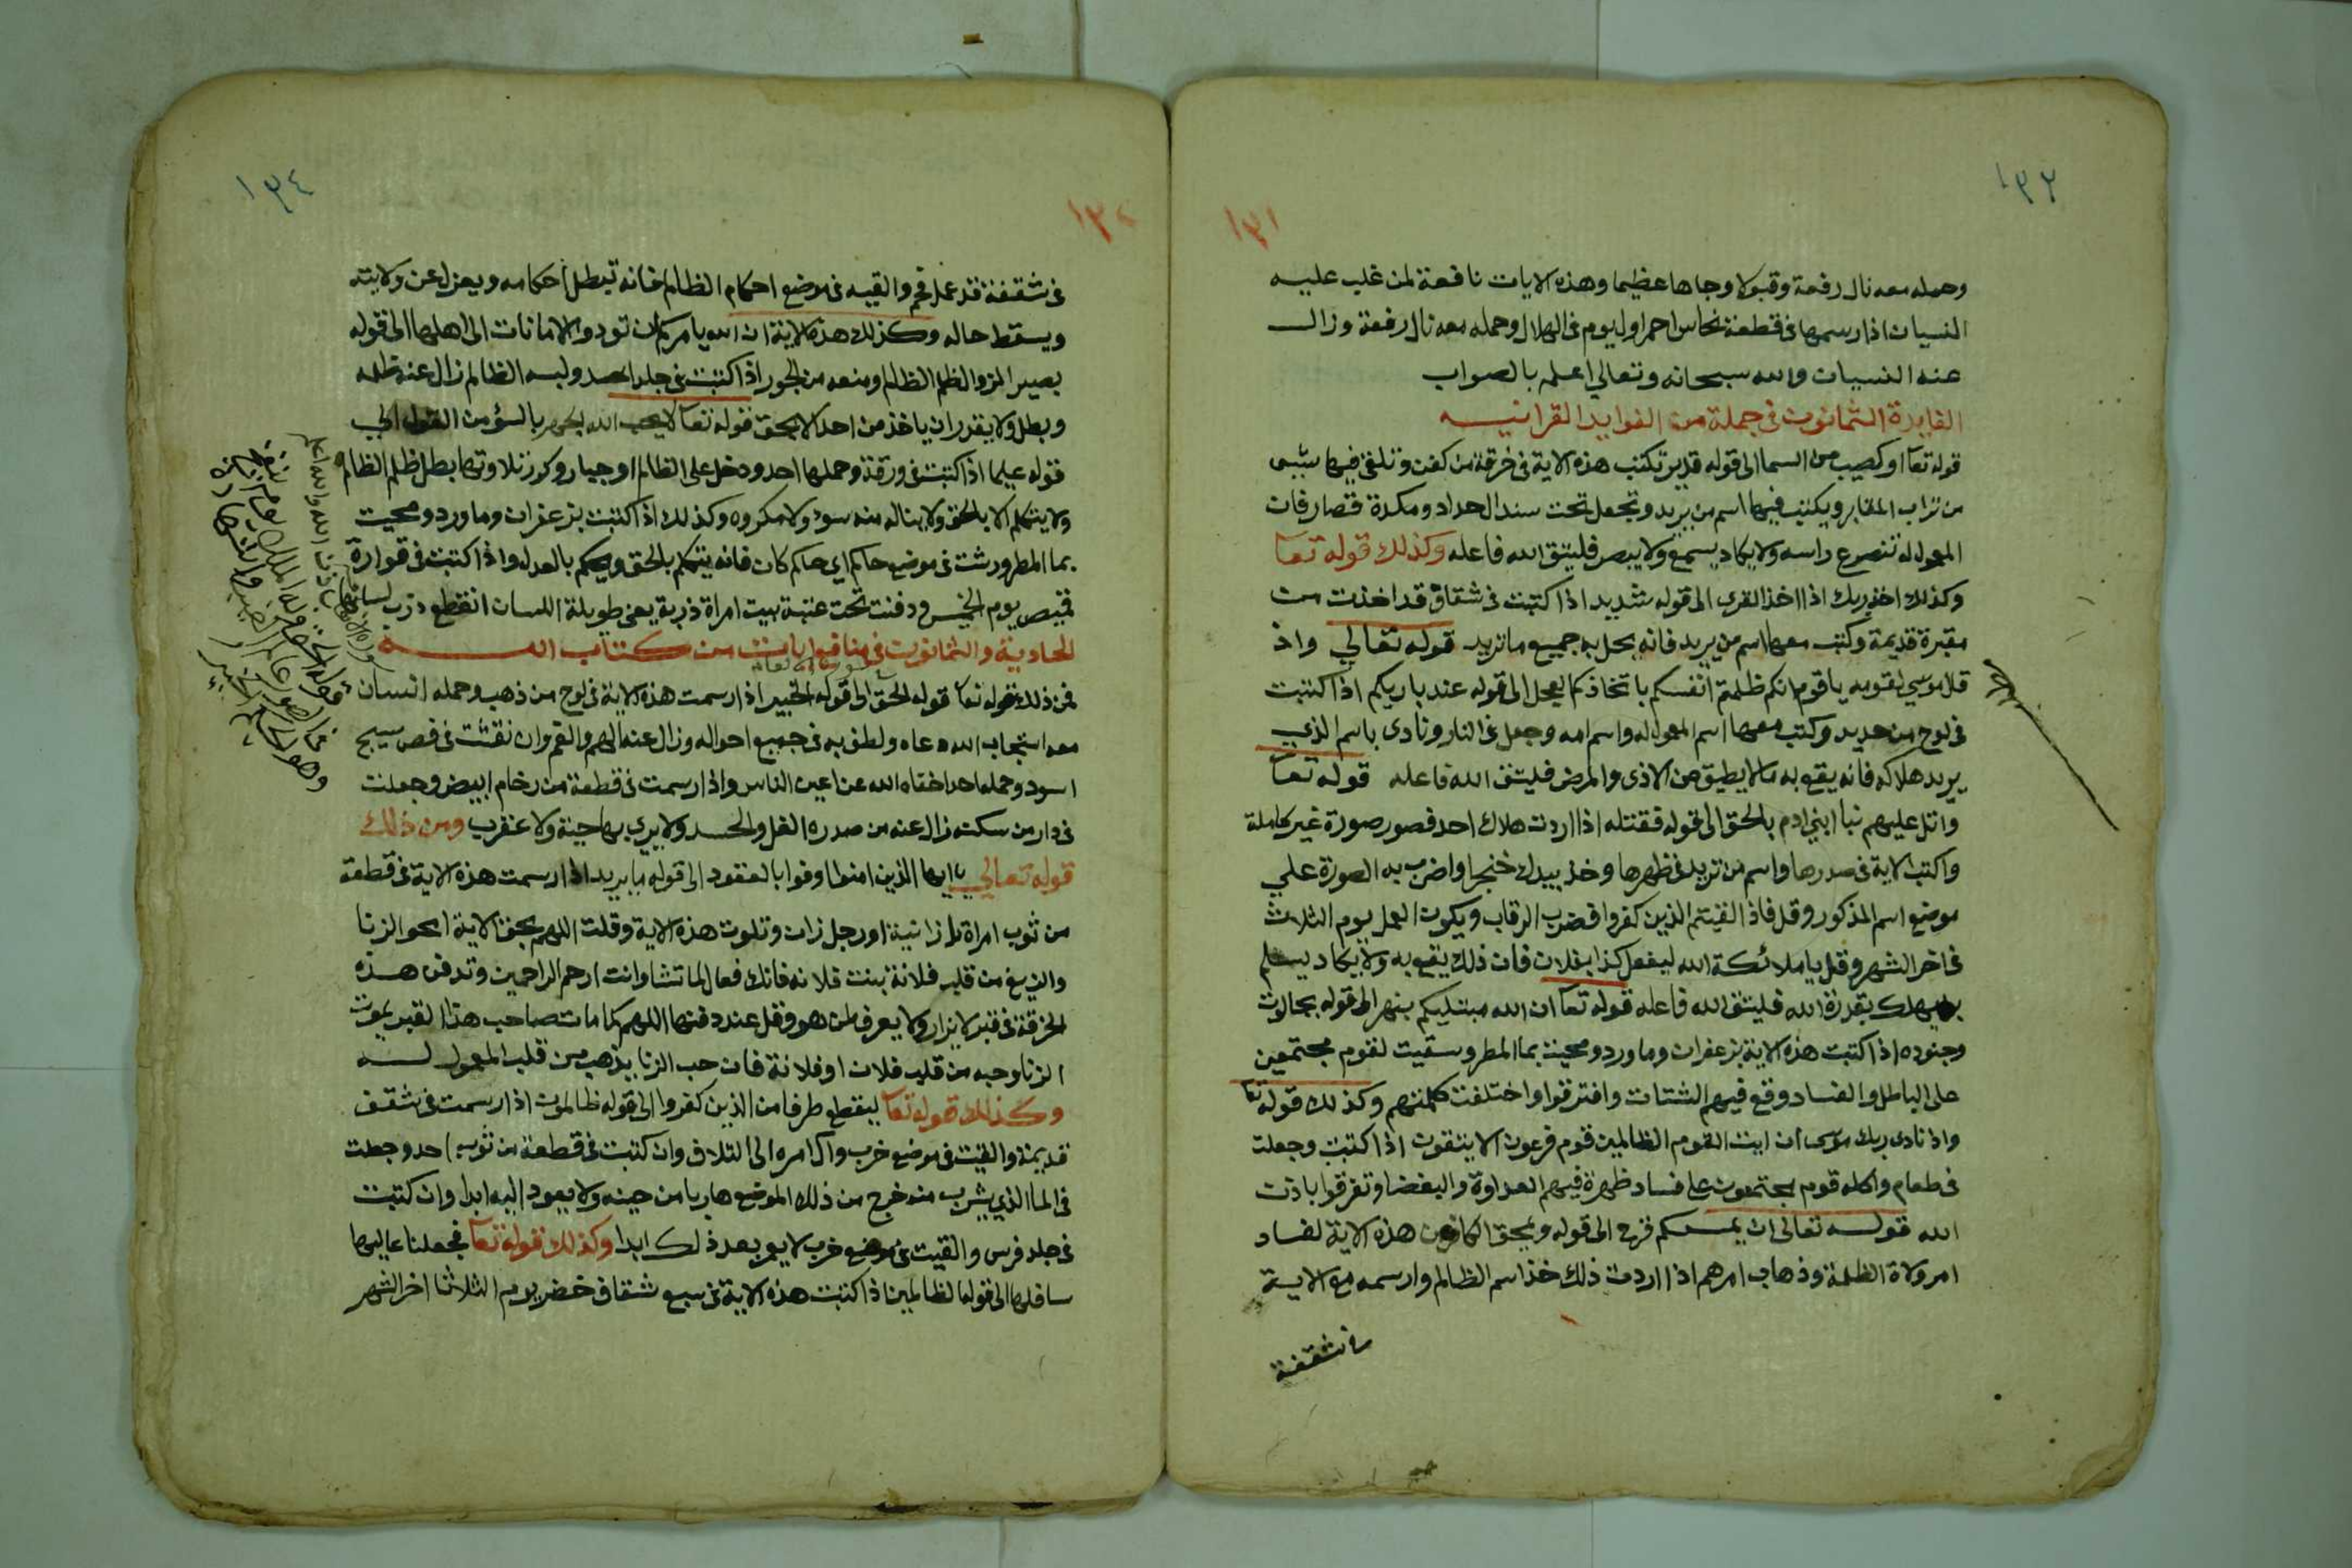 ١٣٢
١٣١
وحمله معه نال رفعة وقبولا وجاها عظيما وهذه الايات نافعة لمن غلب عليه
النسيان اذا رسمها فى قطعة نحاس احمر اول يوم فى الهلال وحمله معه نال رفعة وزال
عنه النسيان والله سبحانه وتعالي اعلم بالصواب
الفايدة الثمانون فى جملة من الفوايد القرانيه
قوله تعا او كصيب من السما الى قوله قدير تكتب هذه الاية فى خرقة من كفن وتلقى فيها شيى
من تراب المقابر ويكتب فيها اسم من يريد وتجعل تحت سندال حداد ومكدة قصار فان
المعمول له تنصرع راسه ولا يكاد يسمع ولا يبصر فليتق الله فاعله وكذلك قوله تعا
وكذلك اخذ ربك اذا اخذ القرى الى قوله شديد اذا كتبت فى شقاق قد اخذت من
مقبرة قديمة وكتب معها اسم من يريد فانه يحل به جميع ما تريد قوله تعالي واذ
قال موسي لقومه يا قوم انكم ظلمتم انفسكم باتخاذكم العجل الى قوله عند باريكم اذا كتبت
فى لوح من حديد وكتب معها اسم المعمول له واسم امه وجعل فى النار ونادى باسم الذي
يريد هلاكه فانه يقع به ما لا يطيق من الاذى والمرض فليتق الله فاعله قوله تعا
واتل عليهم نبا ابني ادم بالحق الى قوله فقتله اذا اردت هلاك احد فصور صورة غير كاملة
واكتب الاية فى صدرها واسم من تريد فى ظهرها وخذ بيدك خنجرا واضرب به الصورة علي
موضع اسم المذكور وقل فاذا لقيتم الذين كفروا فضرب الرقاب ويكون العمل يوم الثلاث
فى اخر الشهر وقل يا ملائكة الله ليفعل كذا بفلان فان ذلك يقع به ولا يكاد يسلم
يهلك بقدرة الله فليتق الله فاعله قوله تعا ان الله مبتليكم بنهر الى قوله بجالوت
وجنوده اذا كتبت هذه الاية بزعفران وماورد ومحيت بما المطر وسقيت لقوم مجتمعين
على الباطل والفساد وقع فيهم الشتات وافترقوا واختلفت كلمتهم وكذلك قوله تعا
واذ نادى ربك موسى ان ايت القوم الظالمين قوم فرعون الا يتقون اذا كتبت وجعلت
فى طعام واكله قوم مجتمعون على فساد ظهرة فيهم العداوة والبغضا وتفرقوا باذن
الله قوله تعالى ان يمسسكم قرح الى قوله ويمحق الكافرين هذه الاية لفساد
امر ولاة الظلمة وذهاب امرهم اذا اردت ذلك خذ اسم الظالم وارسمه مع الاية
شقفة
١٣٤
١٣٢
فى شقفة قد عمل فحم والقيه فى موضع احكام الظالم فانه تبطل احكامه ويعزل عن ولايته
ويسقط حاله وكذلك هذه الاية ان الله يامركم ان تودوا الامانات الى اهلها الى قوله
بصيرا لمنع الظلم الظالم ومنعه من الجور اذا كتبت فى جلد اسد ولبسه الظالم زال عنه ظلمه
وبطل ولا يقدر ان ياخذ من احد الا بحق قوله تعا لا يحب الله الجهر بالسؤ من القول الي
قوله عليما اذا كتبت فى ورقة وحملها احد ودخل على الظالم او جبار وكرر تلاوتها بطل ظلم الظالم
ولا يتكلم الا بالحق ولا يناله منه سوء ولا مكروه وكذلك اذا كتبت بزعفران وماورد ومحيت
بما المطر ورشت فى موضع حاكم اي حاكم كان فانه يتكلم بالحق ويحكم بالعدل واذا كتبت فى قوارة
قميص يوم الخميس ودفنت تحت عتبة بيت امراة ذربة يعنى طويلة اللسان انقطع ذرب لسانها
الحادية والثمانون فى منافع ايات من كتاب الله
فمن ذلك قوله تعا قوله الحق الى قوله الخبير اذا رسمت هذه الاية فى لوح من ذهب وحمله انسان
معه استجاب الله دعاه ولطف به فى جميع احواله وزال عنه الهم والغم وان نقشت فى فص سبج
اسود وحمله احد اخفاه الله عن اعين الناس واذا رسمت فى قطعة من رخام ابيض وجعلت
فى دار من سكنه زال عنه من صدره الغل والحسد ولا يري بها حية ولا عقرب ومن ذلك
قوله تعالي يا ايها الذين امنوا اوفوا بالعقود الى قوله ما يريد اذا رسمت هذه الاية فى قطعة
من ثوب امراة زانية او رجل زان وتلوت هذه الاية وقلت اللهم بحق الاية امحو الزنا
والزيغ من قلب فلانة بنت فلانة فانك فعال لما تشا وانت ارحم الراحمين وتدفن هذه
الخرقة فى قبر لا يزار ولا يعرف لمن هو وقل عند دفنها اللهم كما مات صاحب هذا القبر يموت
الزنا وحبه من قلب فلان او فلانة فان حب الزنا يذهب من قلب المعمول له
وكذلك قوله تعا ليقطع طرفا من الذين كفروا الى قوله ظالمون اذا رسمت فى شقف
قديمة والقيت فى موضع خرب وال امره الى التلاف وان كتبت فى قطعة من ثوب احد وجعلت
فى الما الذي يشرب منه خرج من ذلك الموضع هاربا من حينه ولا يعود اليه ابدا وان كتبت
فى جلد فرس والقيت فى موضع خرب لا يعمر بعد ذلك ابدا وكذلك قوله تعا فجعلنا عاليها
سافلها الى قوله الظالمين اذا كتبت هذه الاية فى سبع شقاق خضر يوم الثلاثا اخر الشهر
قوله الحق وله الملك يوم ينفخ
فى الصور عالم الغيب والشهادة
وهو الحكيم الخبير